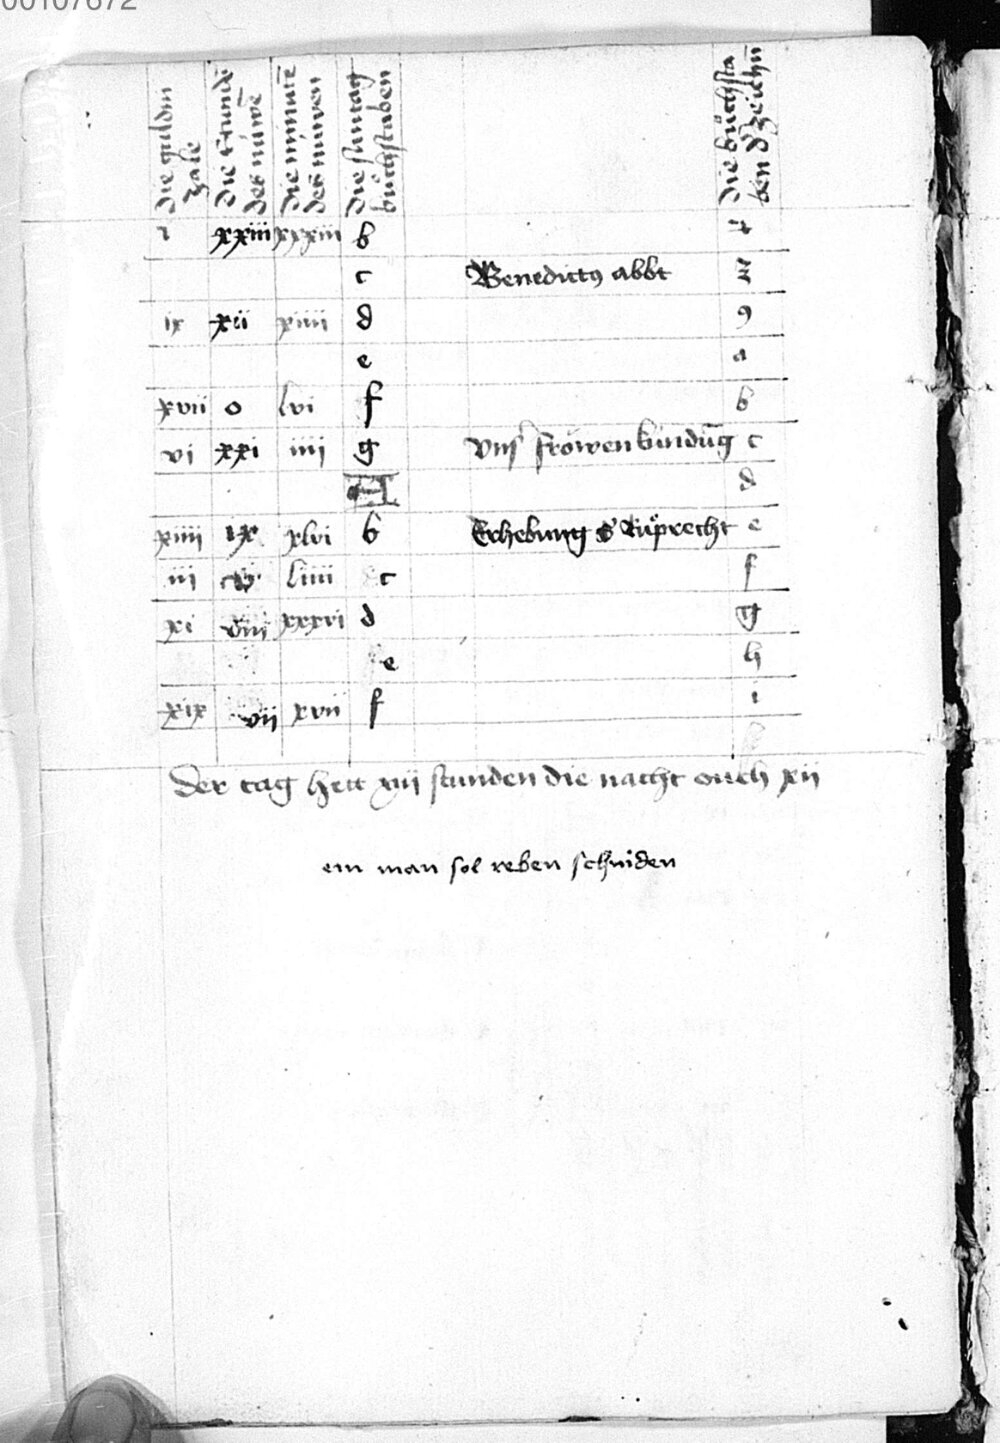 00107672
die guldin zale
die stundē des nüwē
die minutē des nüwen
die suntag bůchstaben
die bůchsta ben d' zeichn̄
i xxiii xxxiii b
c Benedictꝯ abbt
ix xii xiiii d 9
e a
xvii o lvi f b
vi xxi iiii g Vnsˀ frowen kündūg c
A d
xiiii ix xlvi b Erhebung S Růprecht e
iii liiii c f
xi viii xxxvi d g
e h
xix vii xvii f i
der tag hett xii stunden die nacht ouch xii
ein man sol reben schniden